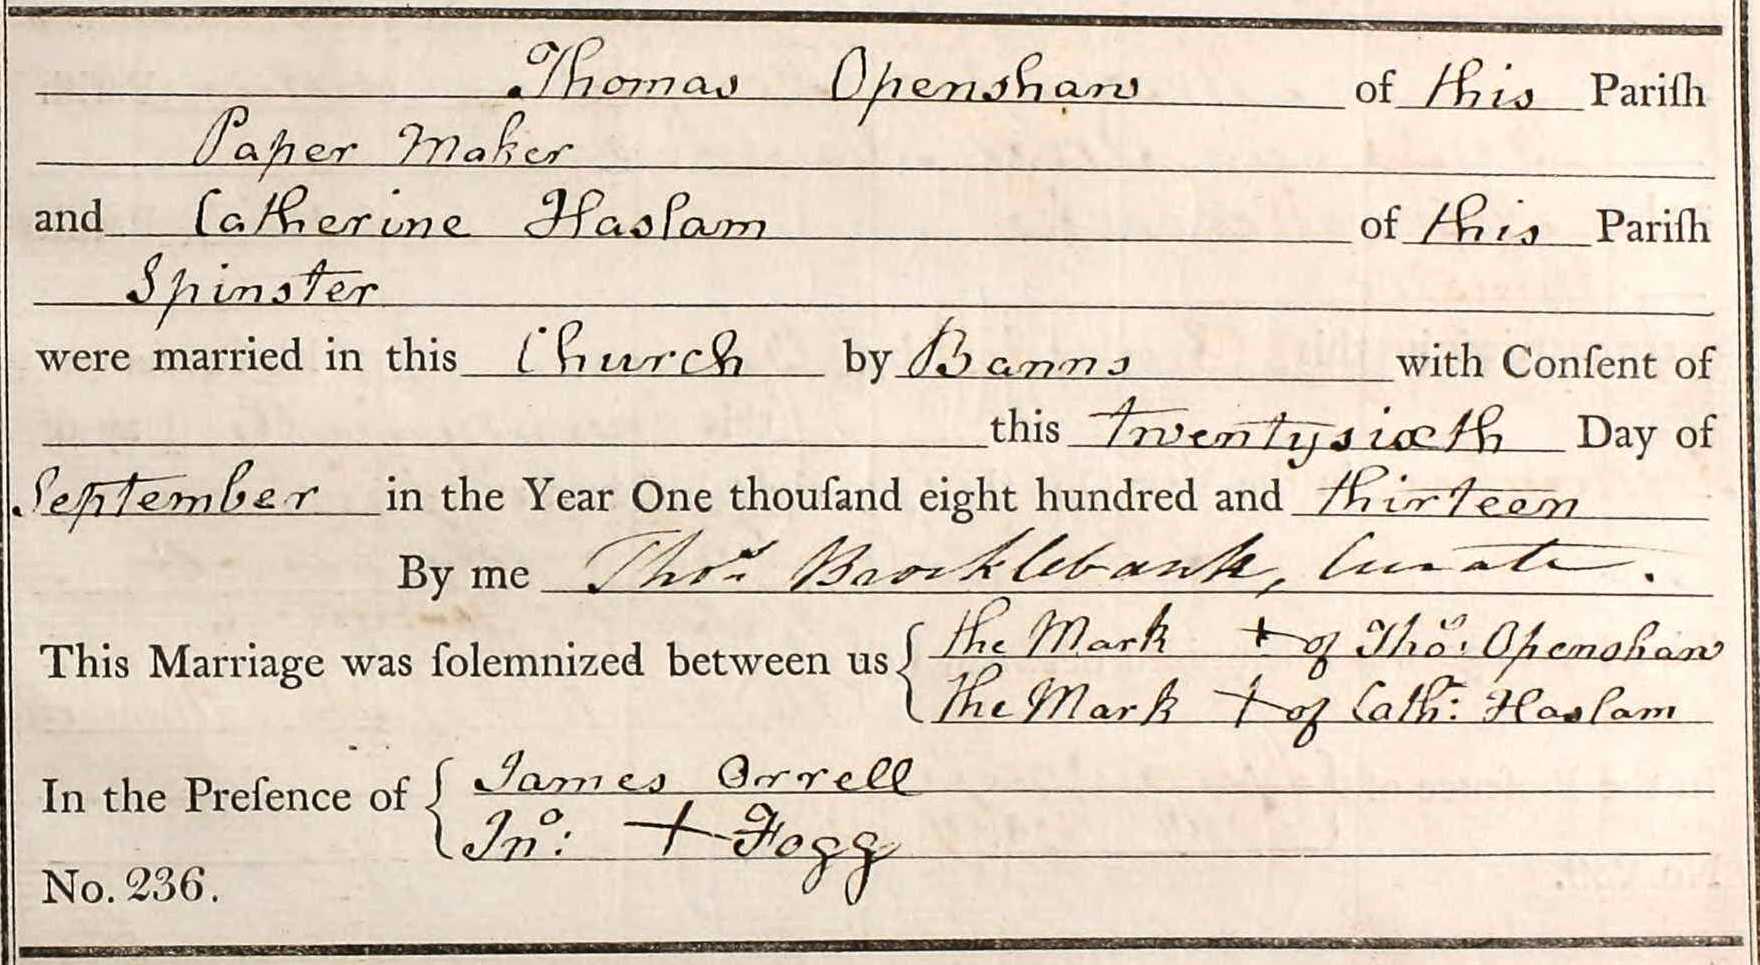 Thomas Openshaw of this Pariſh
Paper Maker
and Catherine Haslam of this Pariſh
Spinster
were married in this Church by Banns with Conſent of
this twentysixth Day of
September in the Year One thouſand eight hundred and thirteen
By me Thos. Brocklebank, Curate.
This Marriage was ſolemnized between us { the Mark + of Tho's: Openshaw
the Mark + of Cath: Haslam
In the Preſence of { James Orrell
Jno: + Fogg
No. 236.